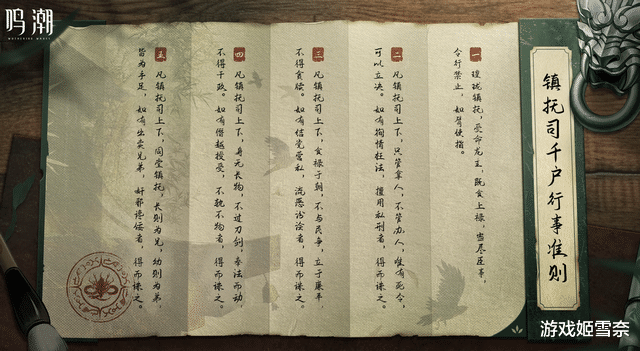 鸣潮
WUTHERING WAVES
镇抚司千户行事准则
一
瑝珑镇抚,受命龙主,既食上禄,当尽臣事,
令行禁止,如臂使指。
二
凡镇抚司上下,只管拿人,不管办人,唯有死令,
可以立决。如有徇情枉法,擅用私刑者,得而诛之。
三
凡镇抚司上下,食禄于朝,不与民争,立于廉平,
不得贪赎。如有结党营私,流恶者,得而诛之。
四
凡镇抚司上下,身无长物,不过刀剑,奉法而动,
不得干政。如有僭越授受,不轨不物者,得而诛之。
五
凡镇抚司上下,同堂镇抚,长则为兄,幼则为弟,
皆为手足。如有出卖兄弟,奸邪谗佞者,得而诛之。
游戏姬雪奈